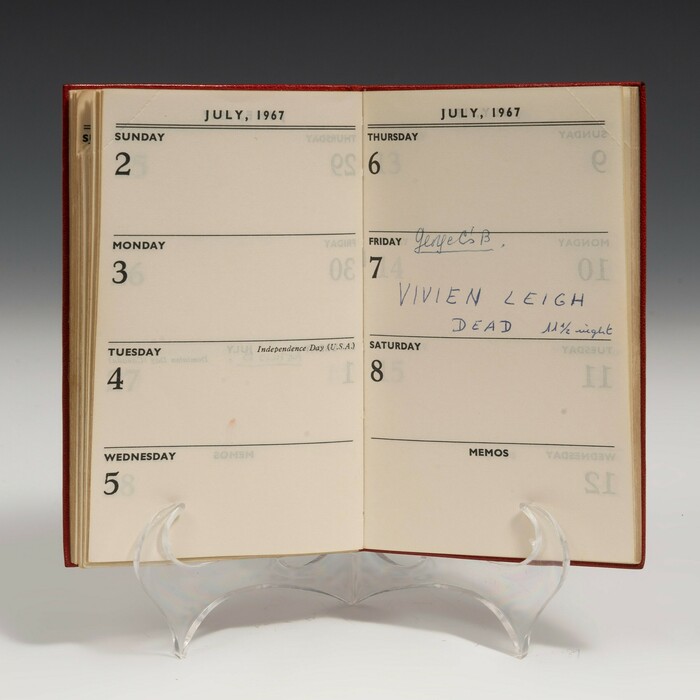 JULY, 1967
SUNDAY
2
MONDAY
3
TUESDAY
Independence Day (U.S.A.)
4
WEDNESDAY
5
JULY, 1967
THURSDAY
6
FRIDAY
George C's B.
7
VIVIEN LEIGH
DEAD 11½ night
SATURDAY
8
MEMOS